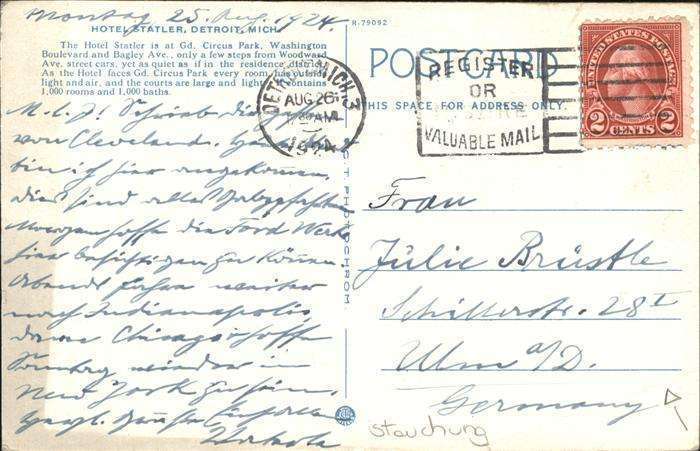 Montag 25. Aug. 1924.
HOTEL STATLER, DETROIT, MICH.
The Hotel Statler is at Gd. Circus Park, Washington
Boulevard and Bagley Ave., only a few steps from Woodward
Ave. street cars, yet as quiet as if in the residence district.
As the Hotel faces Gd. Circus Park every room has outside
light and air, and the courts are large and light. Contains
1,000 rooms and 1,000 baths.
R-79092
POSTCARD
THIS SPACE FOR ADDRESS ONLY.
DETROIT, MICH. 3
AUG 26
AM
1924
REGISTER
OR
INSURE
VALUABLE MAIL
UNITED STATES POSTAGE
2 CENTS 2
M. l. J! Schrieb dir
von Cleveland.
bin ich hier angekommen,
dies sind alles
Morgen hoffe die Ford Werke
hier besichtigen zu können
Abends fahre weiter
nach Indianapolis,
dann Chicago hoffe
Sonntag wieder in
New York zu sein.
PHOTOCHROM
Frau
Julie Brüstle
Schillerstr. 28 I
Ulm a/D.
Germany
Stauchung